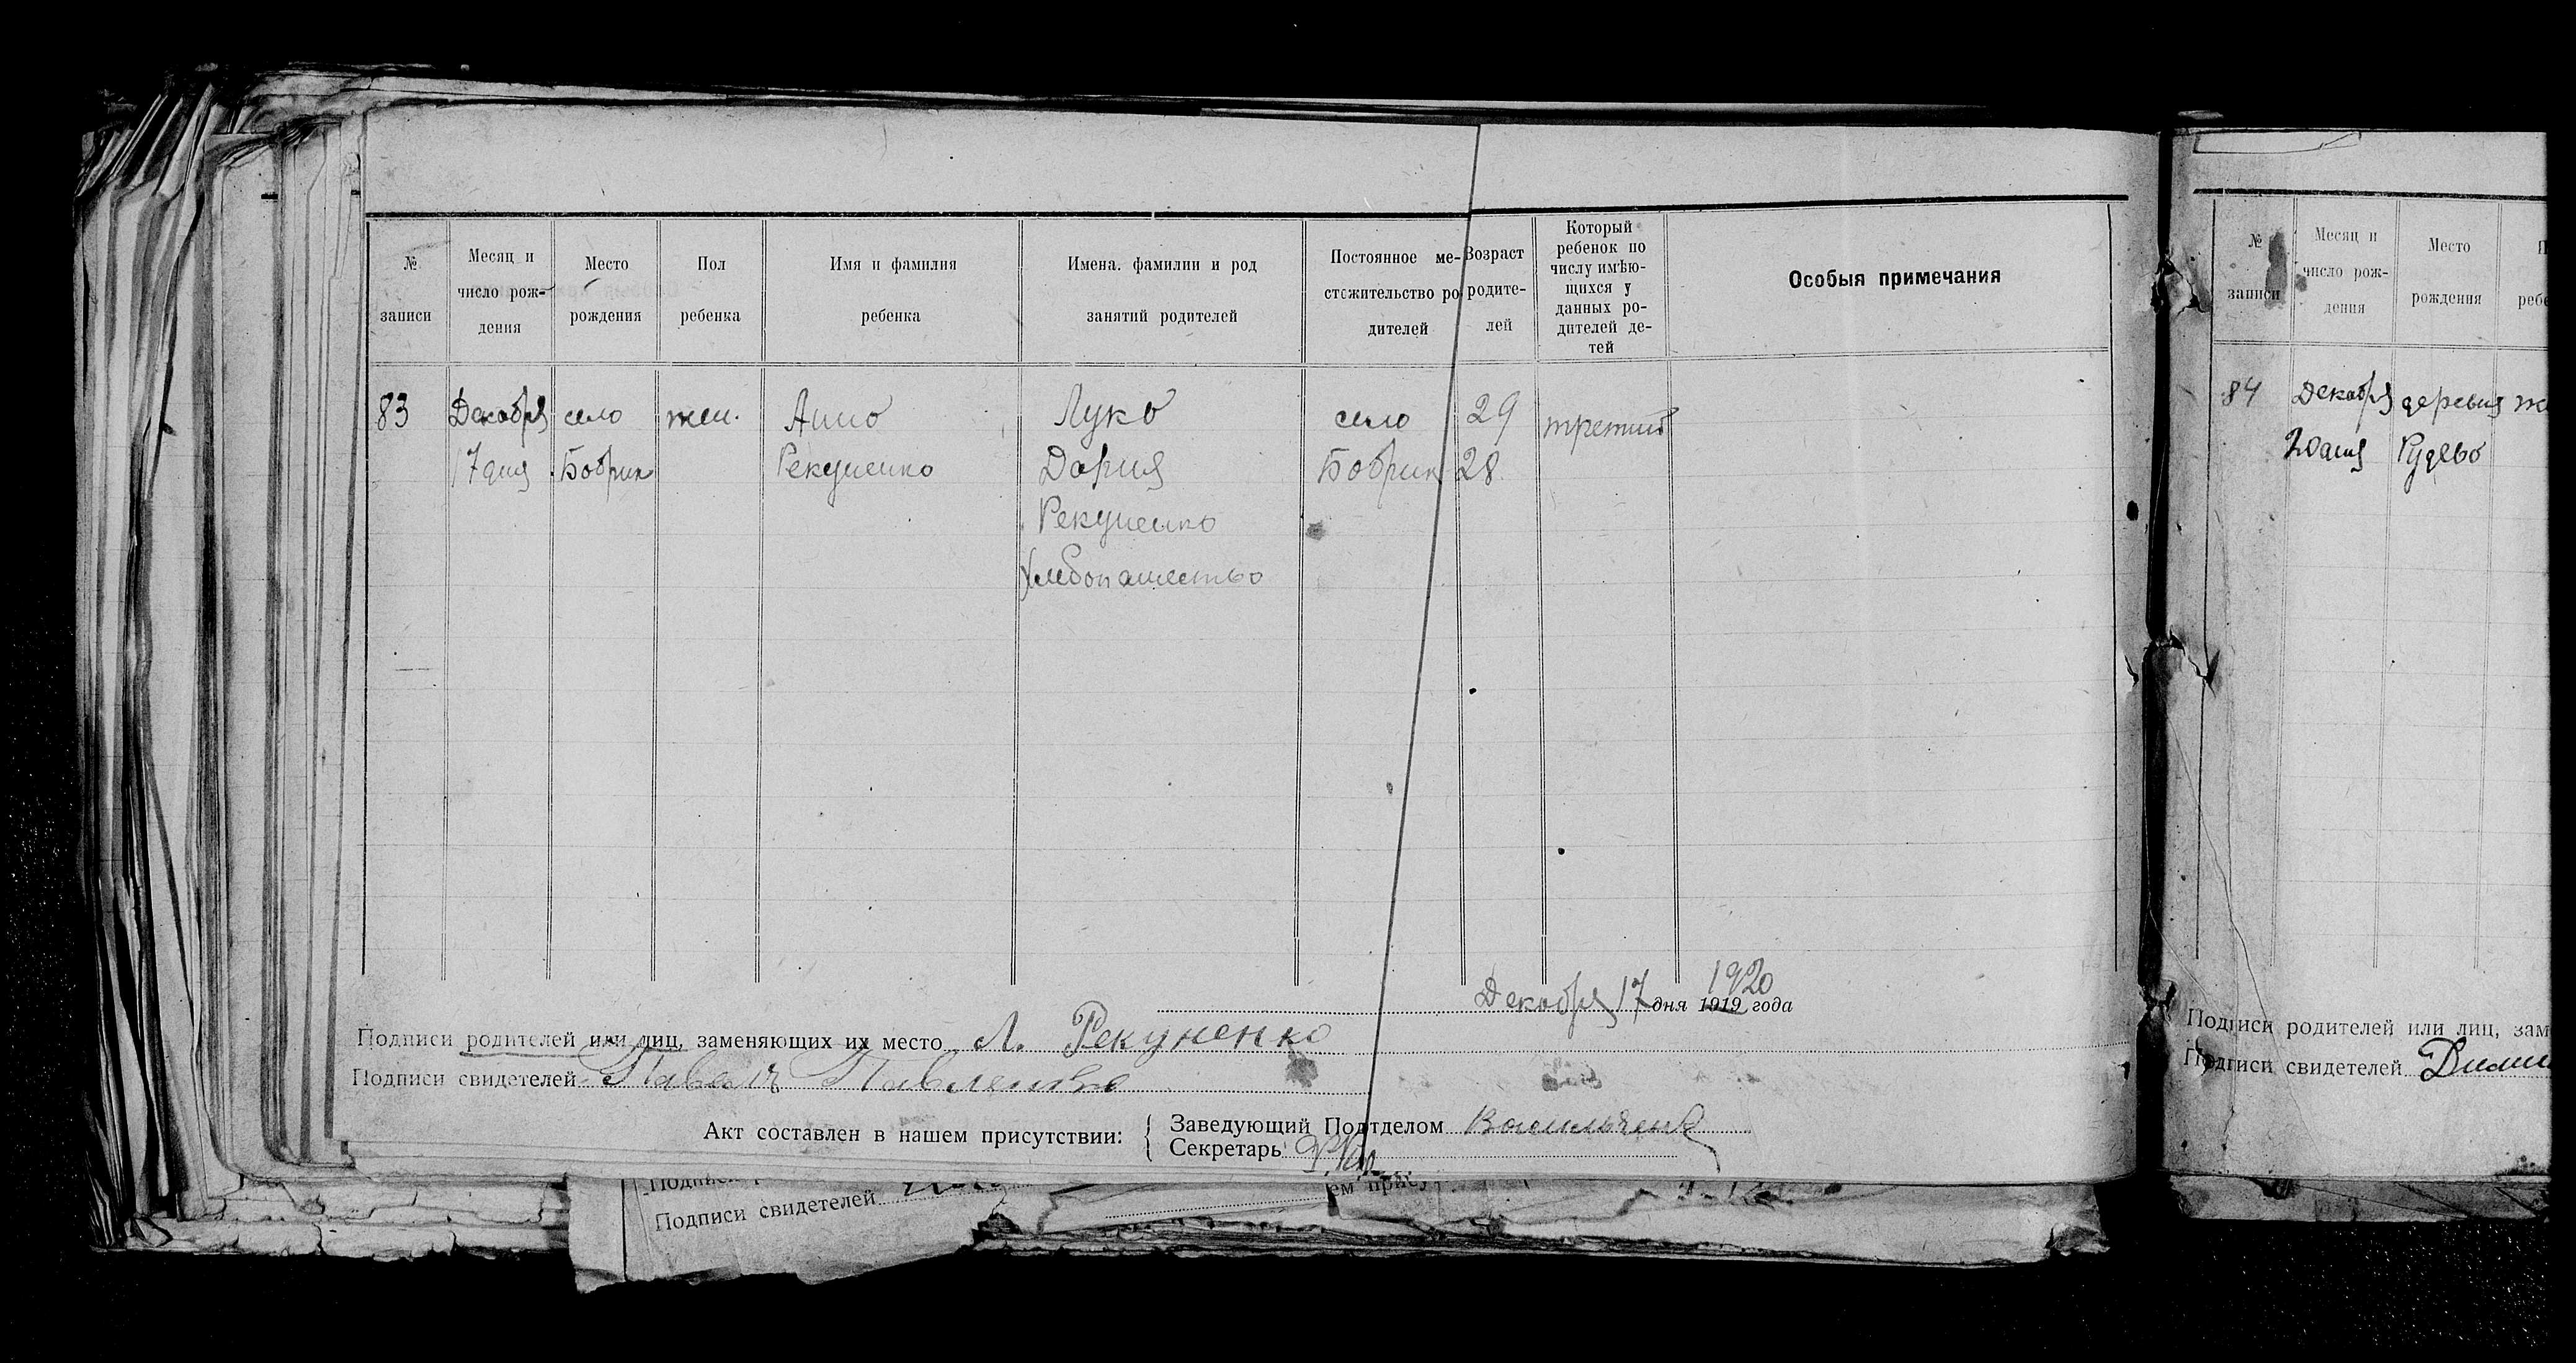 № записи
Месяц и число рождения
Место рождения
Пол ребенка
Имя и фамилия ребенка
Имена. фамилии и род занятий родителей
Постоянное местожительство родителей
Возраст родителей
Который ребенок по числу имѣющихся у данных родителей детей
Особыя примечания
83 Декабря село жен. Анно Луко село 29 третий
17 дня Бобрик Рекуненко Дария Бобрик 28
Рекуненко
Хлебопашество
Декабря 17 дня 1919 1920 года
Подписи родителей или лиц, заменяющих их место Л. Рекуненко
Подписи свидетелей Павелъ Павленко
Акт составлен в нашем присутствии:
Заведующий Подтделом Васильченко
Секретарь
Подписи свидетелей
ем прису
№ записи
Месяц и число рождения
Место рождения
П
ребе
84 Декабря деревня же
20 дня Рудево
Подписи родителей или лиц, зам
Подписи свидетелей